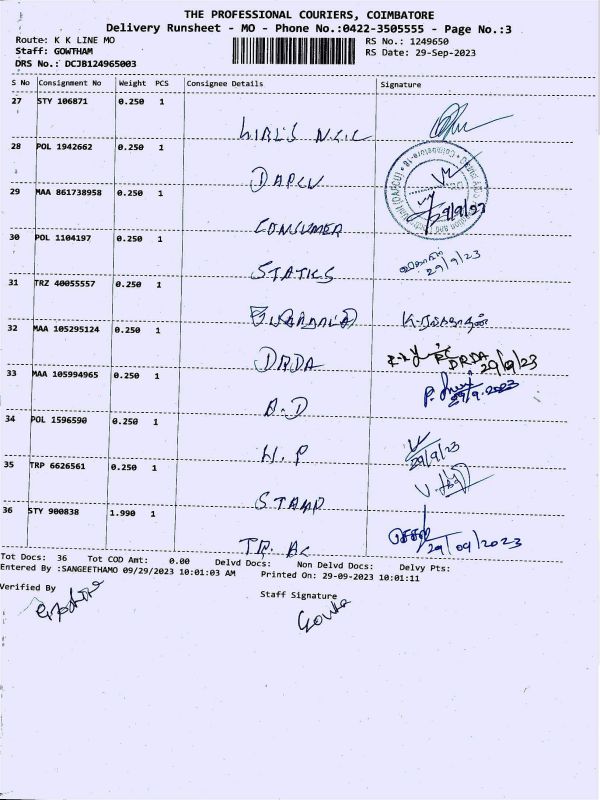 THE PROFESSIONAL COURIERS, COIMBATORE
Delivery Runsheet - MO - Phone No.:0422-3505555 - Page No.:3
Route: K K LINE MO RS No.: 1249650
Staff: GOWTHAM RS Date: 29-Sep-2023
DRS No.: DCJB124965003
S No Consignment No Weight PCS Consignee Details Signature
27 STY 106871 0.250 1
N.C.C
28 POL 1942662 0.250 1
DAPCU
29 MAA 861738958 0.250 1
CONSUMER 29/9/23
30 POL 1104197 0.250 1
STATICS 29/9/23
31 TRZ 40055557 0.250 1
32 MAA 105295124 0.250 1
DRDA DRDA 29/9/23
33 MAA 105994965 0.250 1
A.D 29/9.2023
34 POL 1596590 0.250 1
H.P 29/9/23
35 TRP 6626561 0.250 1
STAMP
36 STY 900838 1.990 1
TR. AC 29/09/2023
Tot Docs: 36 Tot COD Amt: 0.00 Delvd Docs: Non Delvd Docs: Delvy Pts:
Entered By :SANGEETHAMO 09/29/2023 10:01:03 AM Printed On: 29-09-2023 10:01:11
Verified By Staff Signature